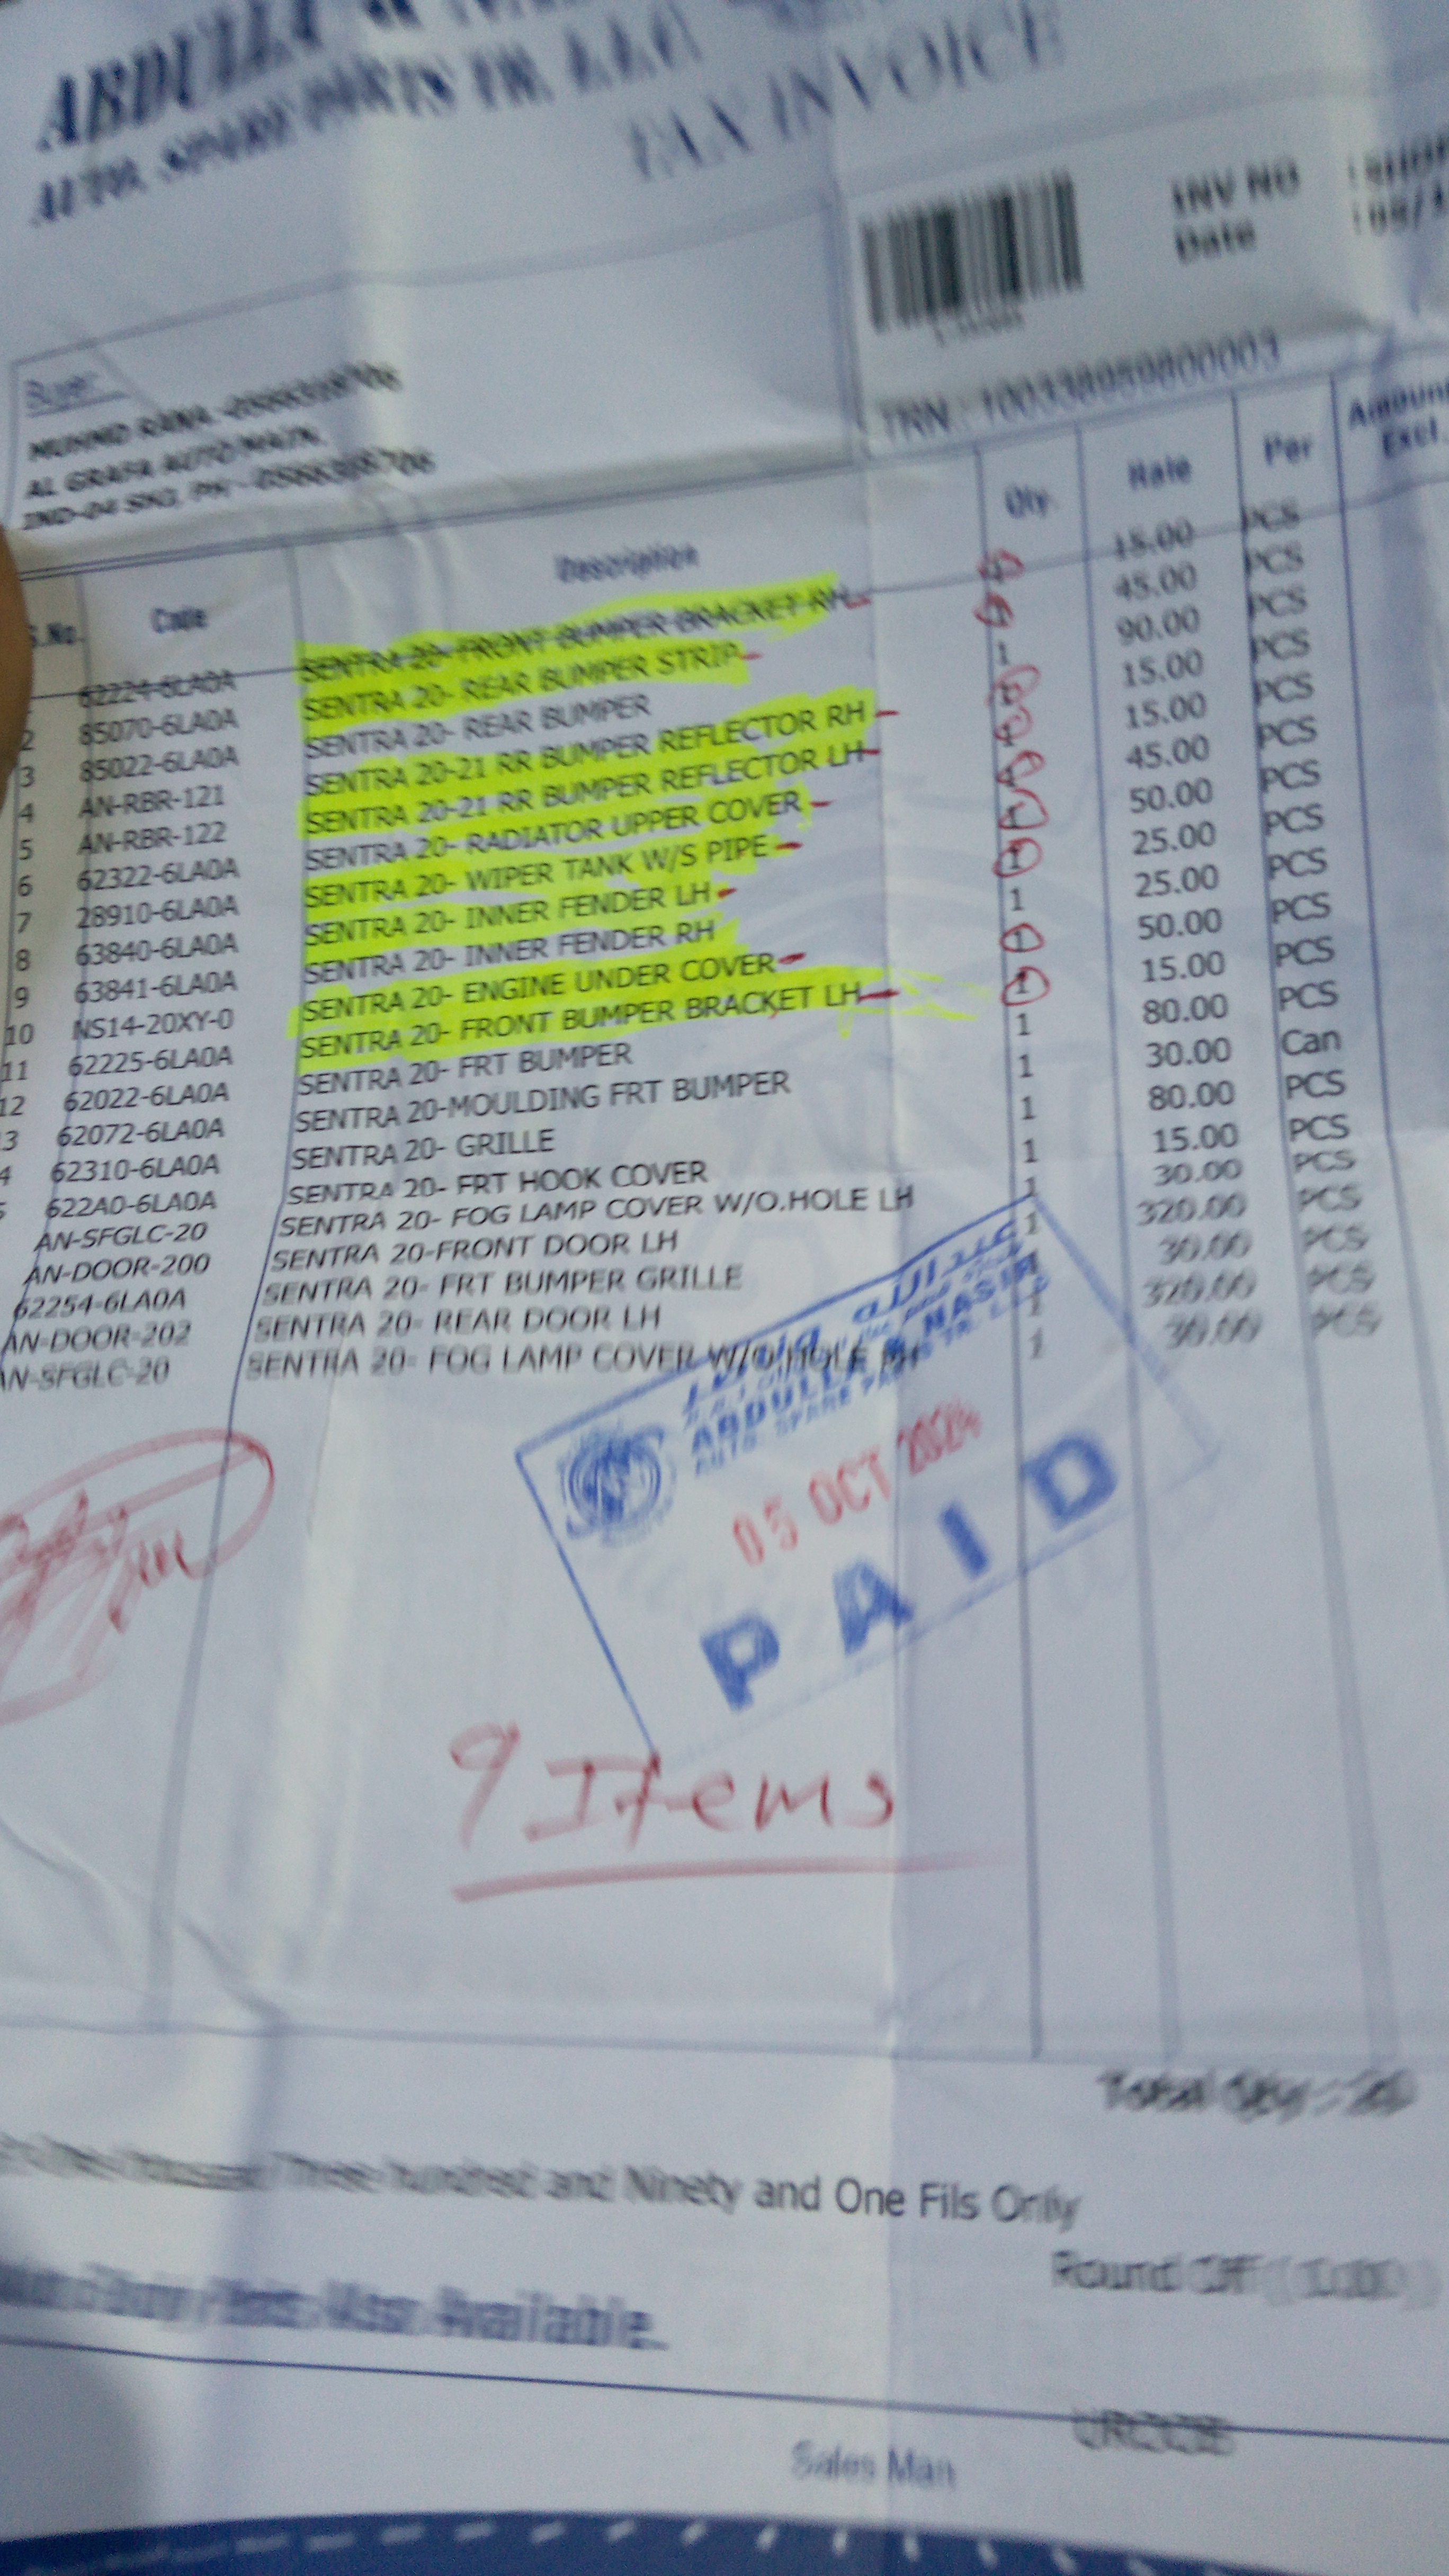 ABDULLA &
AUTO. SPARE PARTS TR. L.L.C
TAX INVOICE
INV NO
Date
TRN : 100338959800003
Buyer:
MUHMD RANA
AL GRAFA AUTO MAIN.
IND-04 SHJ, PH -
S.No. Code Description Qty. Rate Per Amount Excl.
62224-6LA0A SENTRA 20- FRONT BUMPER BRACKET RH 1 15.00 PCS
2 85070-6LA0A SENTRA 20- REAR BUMPER STRIP 1 45.00 PCS
3 85022-6LA0A SENTRA 20- REAR BUMPER 1 90.00 PCS
4 AN-RBR-121 SENTRA 20-21 RR BUMPER REFLECTOR RH 1 15.00 PCS
5 AN-RBR-122 SENTRA 20-21 RR BUMPER REFLECTOR LH 1 15.00 PCS
6 62322-6LA0A SENTRA 20- RADIATOR UPPER COVER 1 45.00 PCS
7 28910-6LA0A SENTRA 20- WIPER TANK W/S PIPE 1 50.00 PCS
8 63840-6LA0A SENTRA 20- INNER FENDER LH 1 25.00 PCS
9 63841-6LA0A SENTRA 20- INNER FENDER RH 1 25.00 PCS
10 NS14-20XY-0 SENTRA 20- ENGINE UNDER COVER 1 50.00 PCS
11 62225-6LA0A SENTRA 20- FRONT BUMPER BRACKET LH 1 15.00 PCS
12 62022-6LA0A SENTRA 20- FRT BUMPER 1 80.00 PCS
3 62072-6LA0A SENTRA 20-MOULDING FRT BUMPER 1 30.00 Can
4 62310-6LA0A SENTRA 20- GRILLE 1 80.00 PCS
5 622A0-6LA0A SENTRA 20- FRT HOOK COVER 1 15.00 PCS
AN-SFGLC-20 SENTRA 20- FOG LAMP COVER W/O.HOLE LH 1 30.00 PCS
AN-DOOR-200 SENTRA 20-FRONT DOOR LH 1 320.00 PCS
62254-6LA0A SENTRA 20- FRT BUMPER GRILLE 1 30.00 PCS
AN-DOOR-202 SENTRA 20- REAR DOOR LH 1 320.00 PCS
AN-SFGLC-20 SENTRA 20- FOG LAMP COVER W/O.HOLE RH 1 30.00 PCS
عبدالله و ناصر
ABDULLA & NASIR
AUTO. SPARE PARTS TR. L.L.C
05 OCT 2024
PAID
9 Items
Total Qty : 20
Three hundred and Ninety and One Fils Only
Round Off
Also Available.
Sales Man